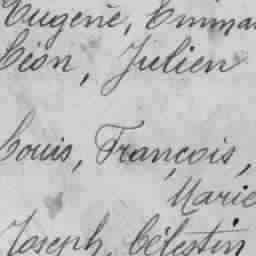 Eugène, Emma
Léon, Julien
Louis, François,
Marie
Joseph, Célestin